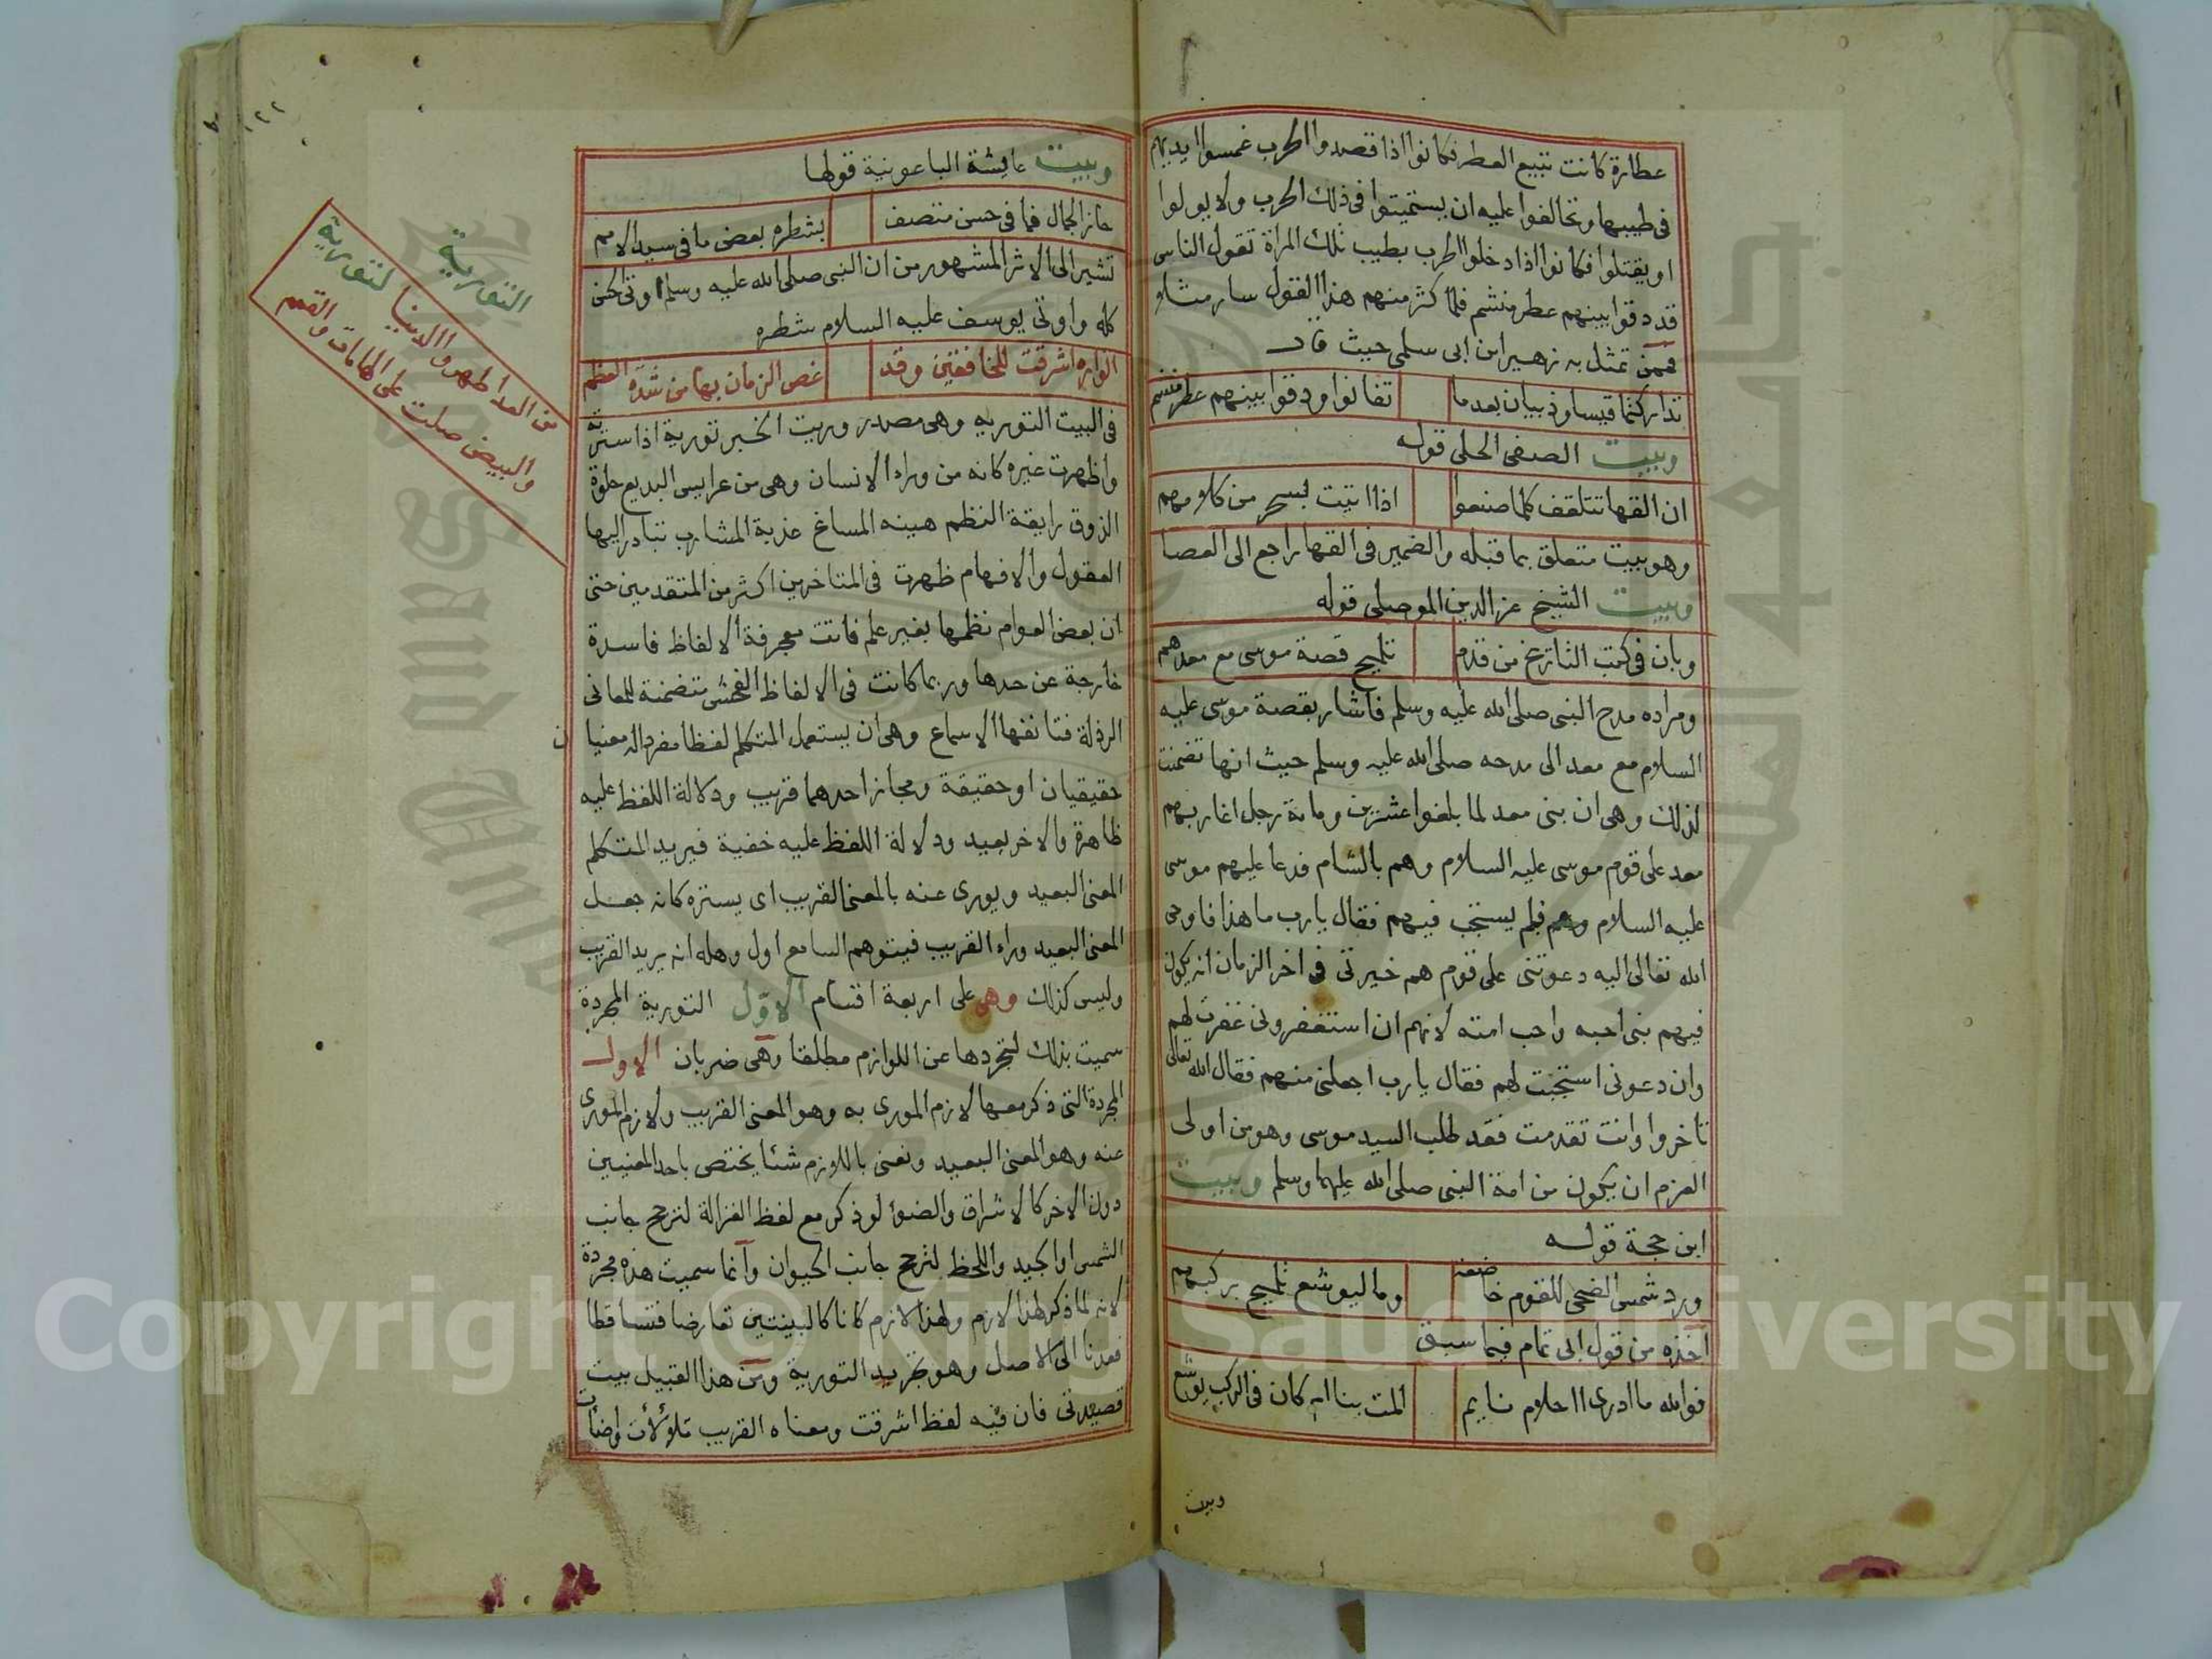 عطارة كانت تبيع العطر فكانوا اذا قصدوا الحرب غمسوا ايديهم
فى طيبها وتحالفوا عليه ان يستميتوا فى ذلك الحرب ولا يولوا
او يقتلوا فكانوا اذا دخلوا الحرب بطيب تلك المراة تقول الناس
قد دقوا بينهم عطر منشم فلما كثر منهم هذا القول سار مثلا
فممن تمثل به زهير ابن ابى سلمى حيث قال
تداركتما قيسا وذبيان بعدما تفانوا ودقوا بينهم عطر منشم
وبيت الصفى الحلى قوله
ان القها تتلقف كلما صنعوا اذا اتيت بسحر من كلامهم
وهو بيت متعلق بما قبله والضمير فى القها راجع الى العصا
وبيت الشيخ عز الدين الموصلى قوله
وبان فى كتب التاريخ من قدم تلميح قصة موسى مع معدهم
ومراده مدح النبى صلى الله عليه وسلم فاشار بقصة موسى عليه
السلام مع معد الى مدحه صلى الله عليه وسلم حيث انها تضمنت
لذلك وهى ان بنى معد لما بلغوا عشرين وماية رجل اغار بهم
معد على قوم موسى عليه السلام وهم بالشام فدعا عليهم موسى
عليه السلام وهم فلم يستجب فيهم فقال يا رب ما هذا فاوحى
الله تعالى اليه دعوتنى على قوم هم خيرتى فى اخر الزمان انه يكون
فيهم نبى احبه واحب امته لانهم ان استغفرونى غفرت لهم
وان دعونى استجبت لهم فقال يا رب اجعلنى منهم فقال الله تعالى
تاخروا وانت تقدمت فقد طلب السيد موسى وهو من اولى
العزم ان يكون من امة النبى صلى الله عليهما وسلم وبيت
ابن حجة قوله
ورد شمس الضحى للقوم خاضعة وما ليوشع تلميح بركبهم
اخذه من قول ابى تمام فيما سبق
فوالله ما ادرى ااحلام نايم المت بنا ام كان فى الركب يوشع
وبيت
وبيت عايشة الباعونية قولها
حاز الجمال فما فى حسن متصف بشطره بعض ما فى سيد الامم
تشير الى الاثر المشهور من ان النبى صلى الله عليه وسلم اوتى الحسن
كله واوتى يوسف عليه السلام شطره
انواره اشرقت للخافقين وقد غص الزمان بها من شدة العظم
فى البيت التورية وهى مصدر وريت الخبر تورية اذا سترته
واظهرت غيره كانه من وراء الانسان وهى من عرايس البديع حلوة
الذوق رايقة النظم هينه المساغ عذبة المشارب تبادر اليها
العقول والافهام ظهرت فى المتاخرين اكثر من المتقدمين حتى
ان بعض العوام نظمها بغير علم فاتت معجرفة الالفاظ فاسدة
خارجة عن حدها وربما كانت فى الالفاظ الفحش متضمنة للمعانى
الرذلة فتانفها الاسماع وهى ان يستعمل المتكلم لفظا مفردا له معنيان
حقيقيان او حقيقة ومجاز احدهما قريب ودلالة اللفظ عليه
ظاهرة والاخر بعيد ودلالة اللفظ عليه خفية فيريد المتكلم
المعنى البعيد ويورى عنه بالمعنى القريب اى يستره كانه جعل
المعنى البعيد وراء القريب فيتوهم السامع اول وهله انه يريد القريب
وليس كذلك وهى على اربعة اقسام الاول التورية المجردة
سميت بذلك لتجردها عن اللوازم مطلقا وهى ضربان الاول
المجردة التى ذكر معها لازم المورى به وهو المعنى القريب ولازم المورى
عنه وهو المعنى البعيد ونعنى باللازم شئا يختص باحد المعنيين
دون الاخر كالاشراق والضوء لو ذكر مع لفظ الغزالة لترجح جانب
الشمس او الجيد واللحظ لترجح جانب الحيوان وانما سميت هذه مجردة
لانه لما ذكر لهذا لازم ولهذا لازم كانا كالبينتين تعارضا فتساقطا
فعدنا الى الاصل وهو تجريد التورية ومن هذا القبيل بيت
قصيدتى فان فيه لفظ اشرقت ومعناه القريب تلالات واضأت
التورية
من العدا طهروا الدنيا لتورية
والبيض صلت على الهامات والقمم
١٢٢
Copyright © King Saud University